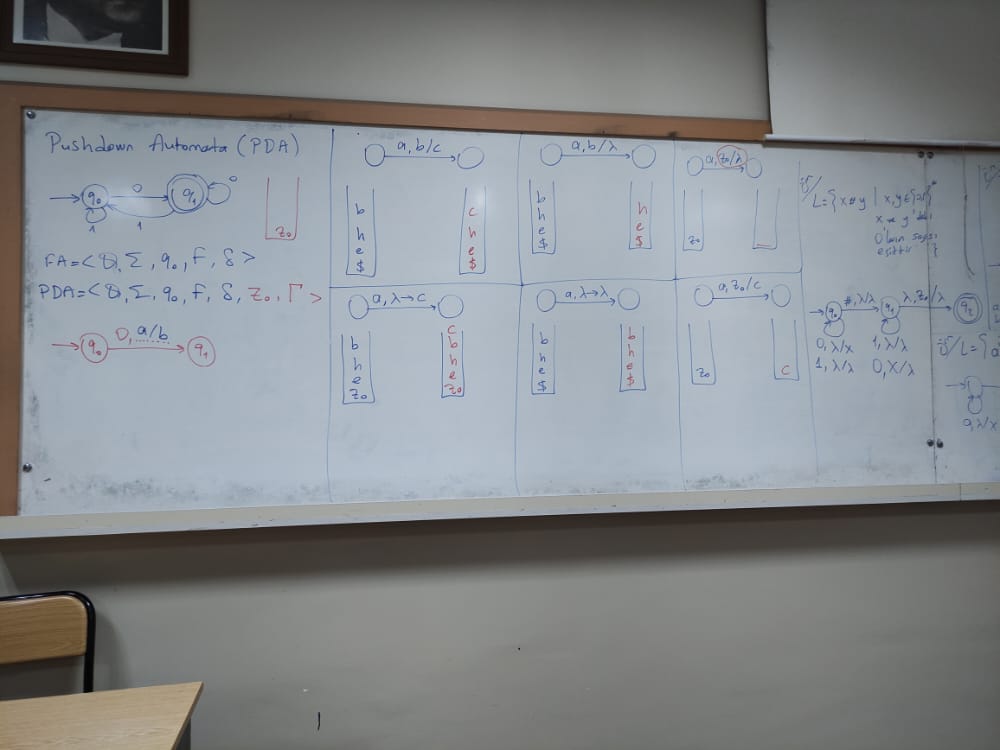 Pushdown Automata (PDA)
q₀
0
q₁
0
1
1
z₀
FA=<Q, Σ, q₀, F, δ>
PDA=<Q, Σ, q₀, F, δ, z₀, Γ>
q₀
0, a/b
q₁
a, b/c
b
h
e
$
c
h
e
$
a, λ→c
b
h
e
z₀
c
b
h
e
z₀
a, b/λ
b
h
e
$
h
e
$
a, λ→λ
b
h
e
$
b
h
e
$
a, z₀/λ
z₀
a, z₀/c
z₀
c
L={x#y | x,y∈
x ve y'deki
0'ların sayısı
eşittir }
q₀
#, λ/λ
q₁
λ, z₀/λ
q₂
0, λ/x
1, λ/λ
1, λ/λ
0, X/λ
L={a
a, λ/x